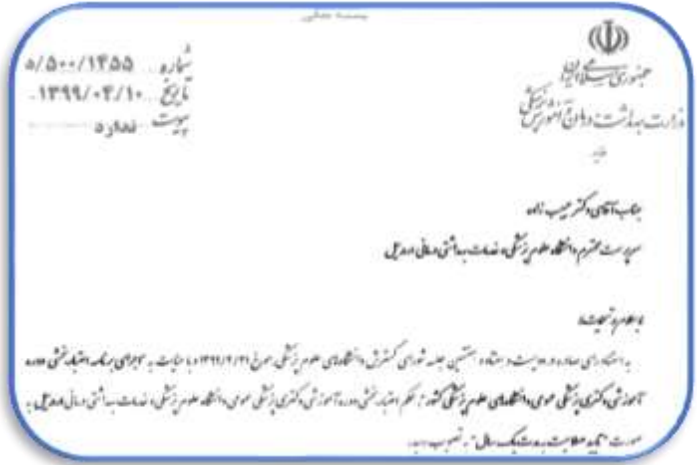 بسمه تعالی
جمهوری اسلامی ایران
وزارت بهداشت، درمان و آموزش پزشکی
وزیر
شماره ۵/۵۰۰/۱۴۵۵
تاریخ ۱۳۹۹/۰۴/۱۰
پیوست ندارد
جناب آقای دکتر حبیب زاده
سرپرست محترم دانشگاه علوم پزشکی و خدمات بهداشتی درمانی اردبیل
با سلام و تحیت؛
به استناد رای صادره در دویست و هفتاد و هفتمین جلسه شورای گسترش دانشگاه‌های علوم پزشکی مورخ ۱۳۹۹/۲/۳۱ و با عنایت به "اجرای برنامه اعتباربخشی دوره
آموزشی دکتری پزشکی عمومی دانشگاه‌های علوم پزشکی کشور"؛ حکم اعتباربخشی دوره آموزشی دکتری پزشکی عمومی دانشگاه علوم پزشکی و خدمات بهداشتی درمانی اردبیل به
صورت "تایید صلاحیت به مدت یک سال" به تصویب رسید.